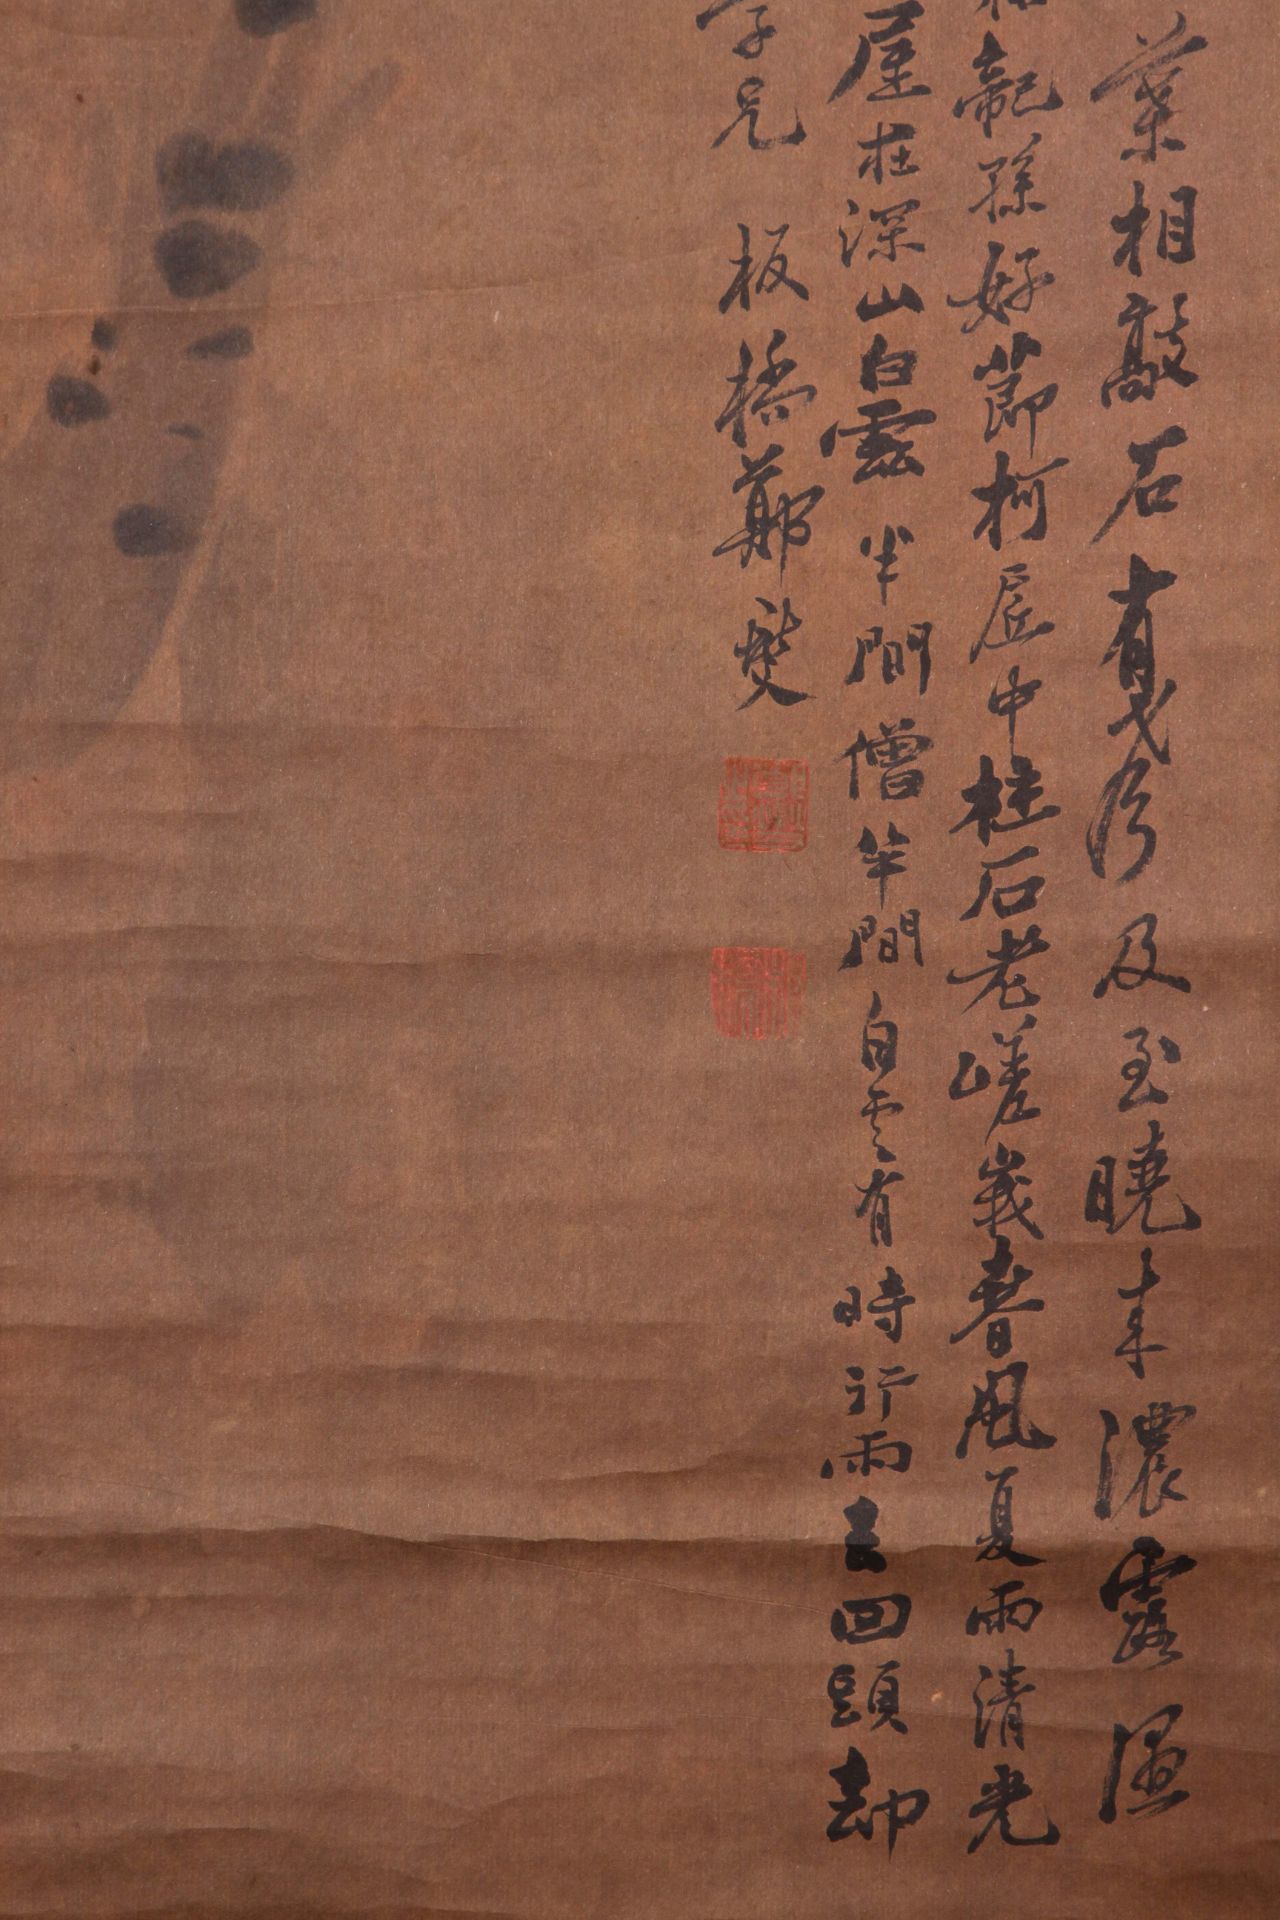 葉相敲石有聲及至曉來濃露濕
龍孫好節柯屈中柱石老嵯峩春風夏雨清光
屋在深山白雲半間僧半間白雲有時行雨去回頭却
學兄 板橋鄭燮